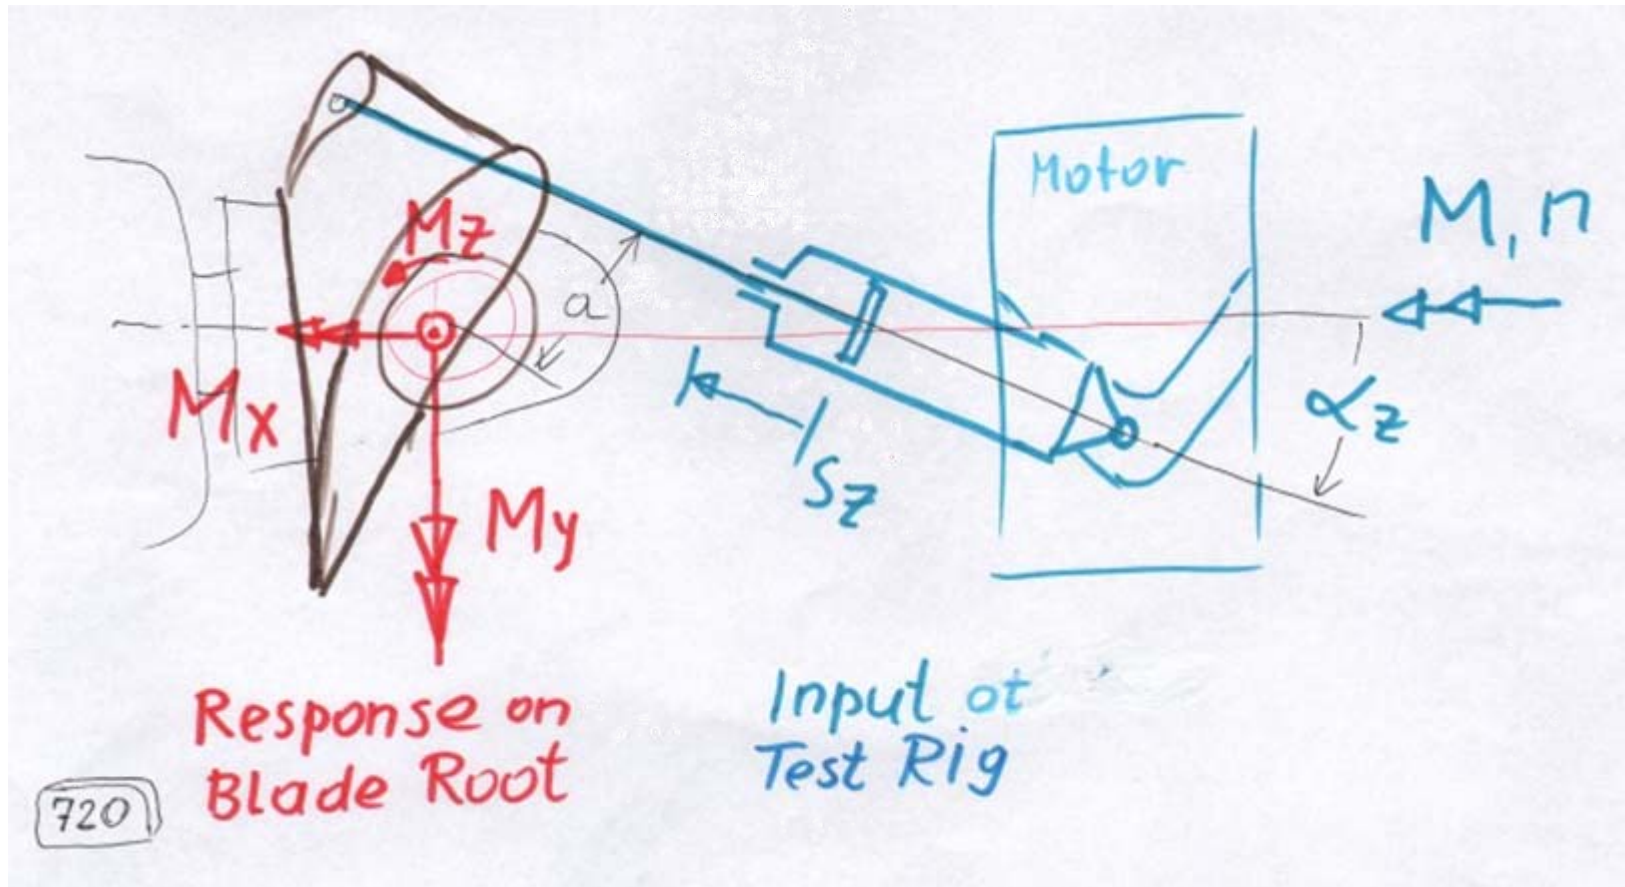 Motor
M, n
Mz
a
Mx
αz
Sz
My
Response on
Blade Root
Input at
Test Rig
720